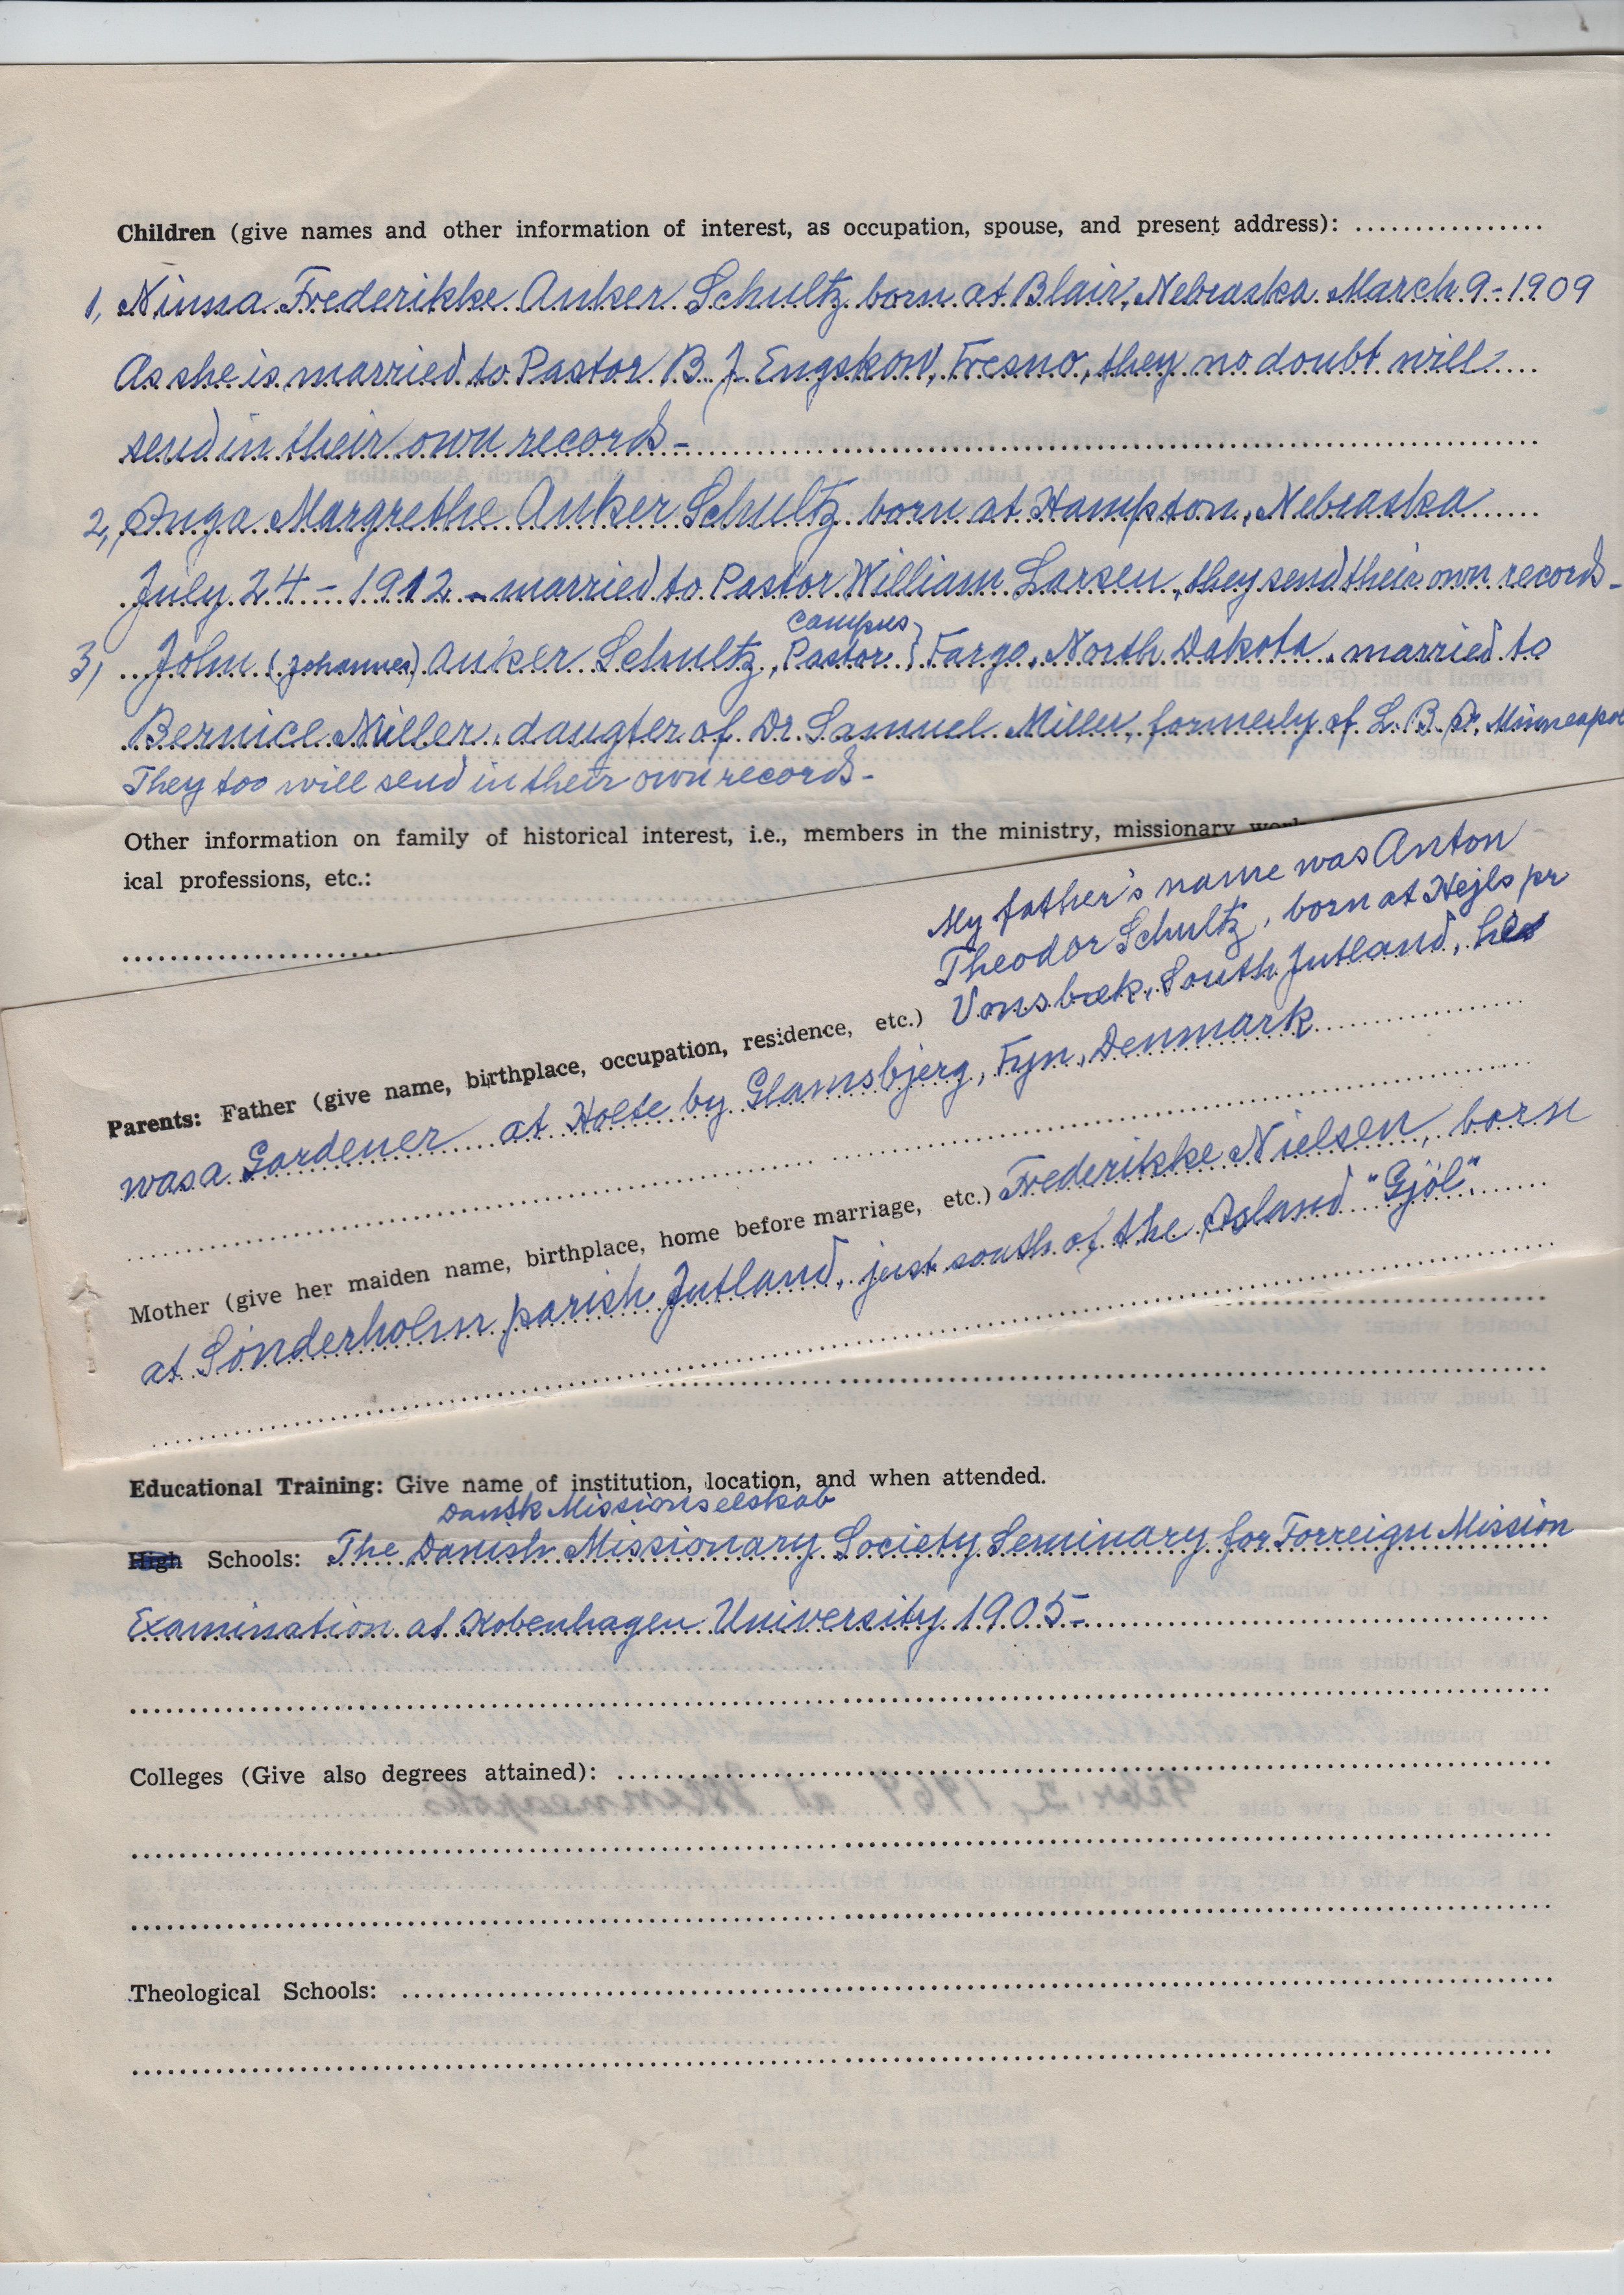 Children (give names and other information of interest, as occupation, spouse, and present address):
1, Ninna Frederikke Anker Schultz born at Blair, Nebraska March 9-1909
As she is married to Pastor B. J. Engskow, Fresno, they no doubt will
send in their own records -
2, Inga Margrethe Anker Schultz born at Hampton, Nebraska
July 24 - 1912 - married to Pastor William Larsen, they send their own records -
campus
3, John (Johannes) Anker Schultz, Pastor } Fargo, North Dakota, married to
Bernice Miller, daugter of Dr Samuel Miller, formerly of L. B. Minneapol
They too will send in their own records -
Other information on family of historical interest, i.e., members in the ministry, missionary work
ical professions, etc.:
My father's name was Anton
Theodor Schultz, born at Hejls pr
Parents: Father (give name, birthplace, occupation, residence, etc.) Vonsbæk, South Jutland, he
was a Gardener at Holte by Glamsbjerg, Fyn, Denmark
Mother (give her maiden name, birthplace, home before marriage, etc.) Frederikke Nielsen, born
at Sönderholm parish Jutland, just south of the Island "Gjöl"
Educational Training: Give name of institution, location, and when attended.
Dansk Missionselskab
High Schools: The Danish Missionary Society Seminary for Forreign Mission
Examination at Kobenhagen University 1905 -
Colleges (Give also degrees attained):
Theological Schools: